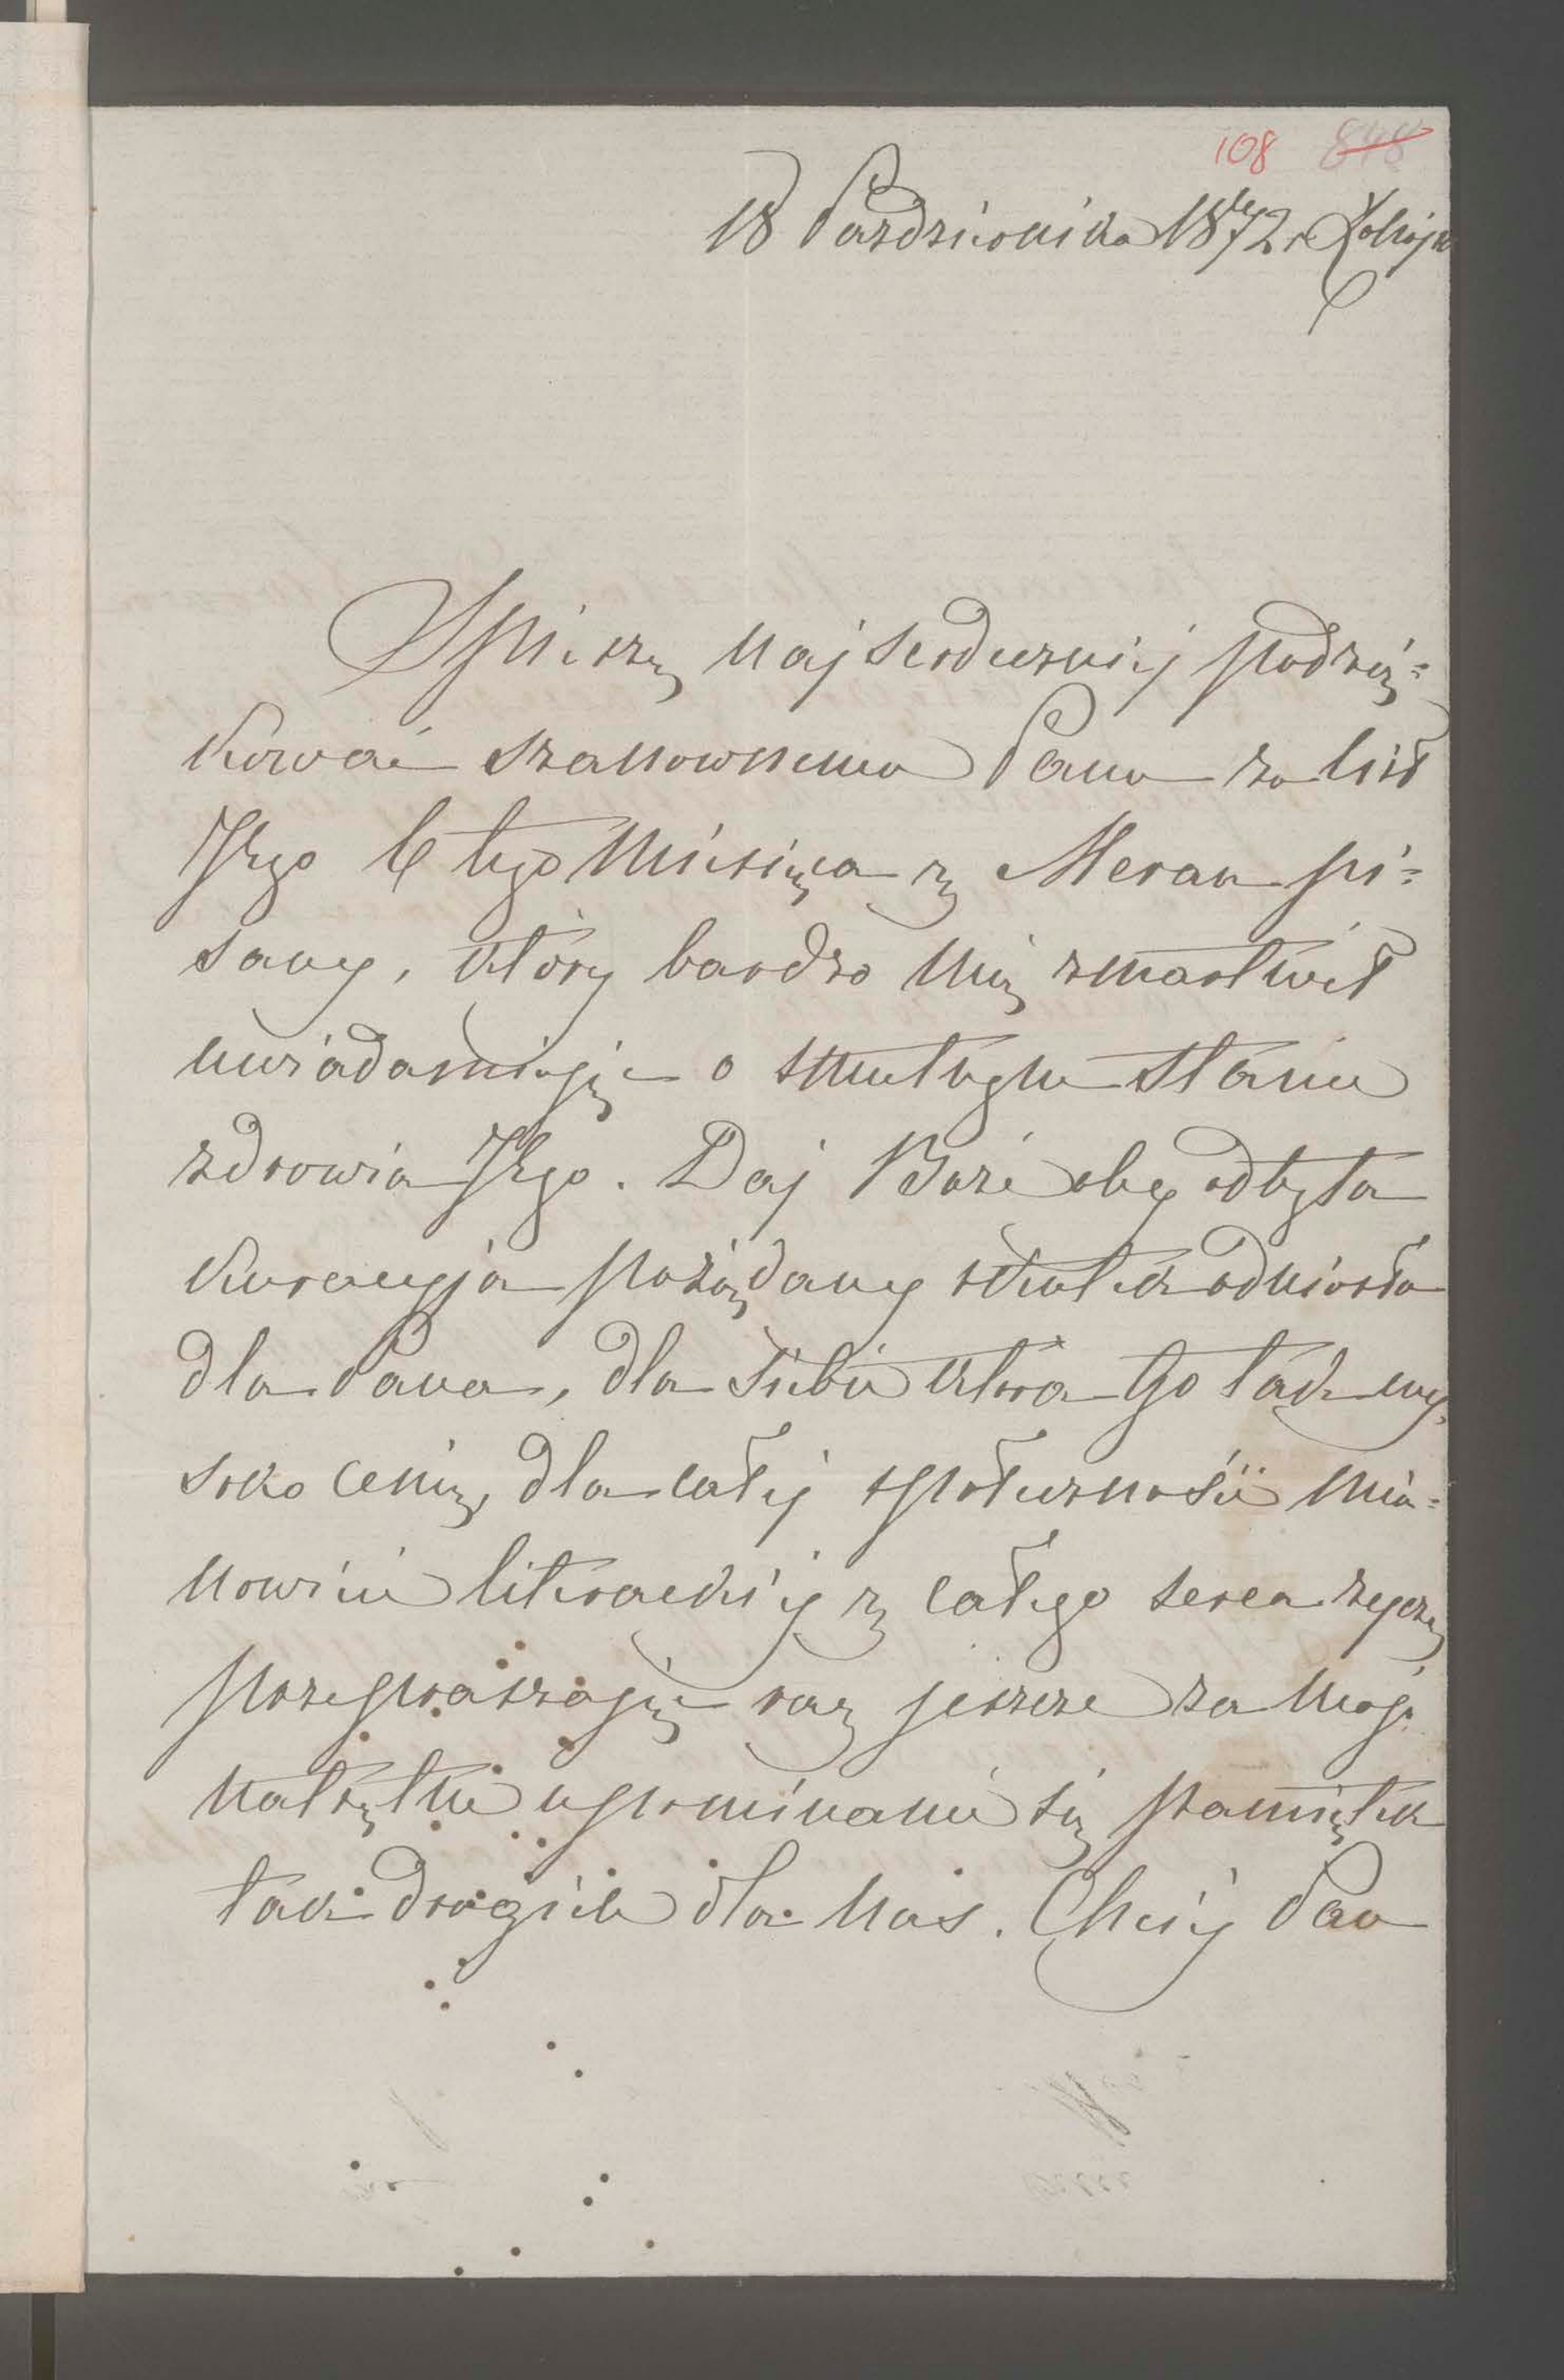 108 848
18 Pazdziernika 1872 r
Spieszę najserdeczniej podzię=
kować szanownemu Panu za list
Jego 6 tego Miesiąca z Meran pi=
sany, który bardzo mię zmartwił
uwiadamiając o smutnym stanie
zdrowia Jego. Daj Boże oby odbyta
kuracyja pożądany skutek odniosła
dla Pana, dla siebie która Go tak wy,
soko cenię, dla całej społeczności mia=
nowicie literackiej z całego serca życzę
przepraszając raz jeszcze za moje
natrętne upominanie się pamiątek
tak drogich dla nas. Chciej Pan